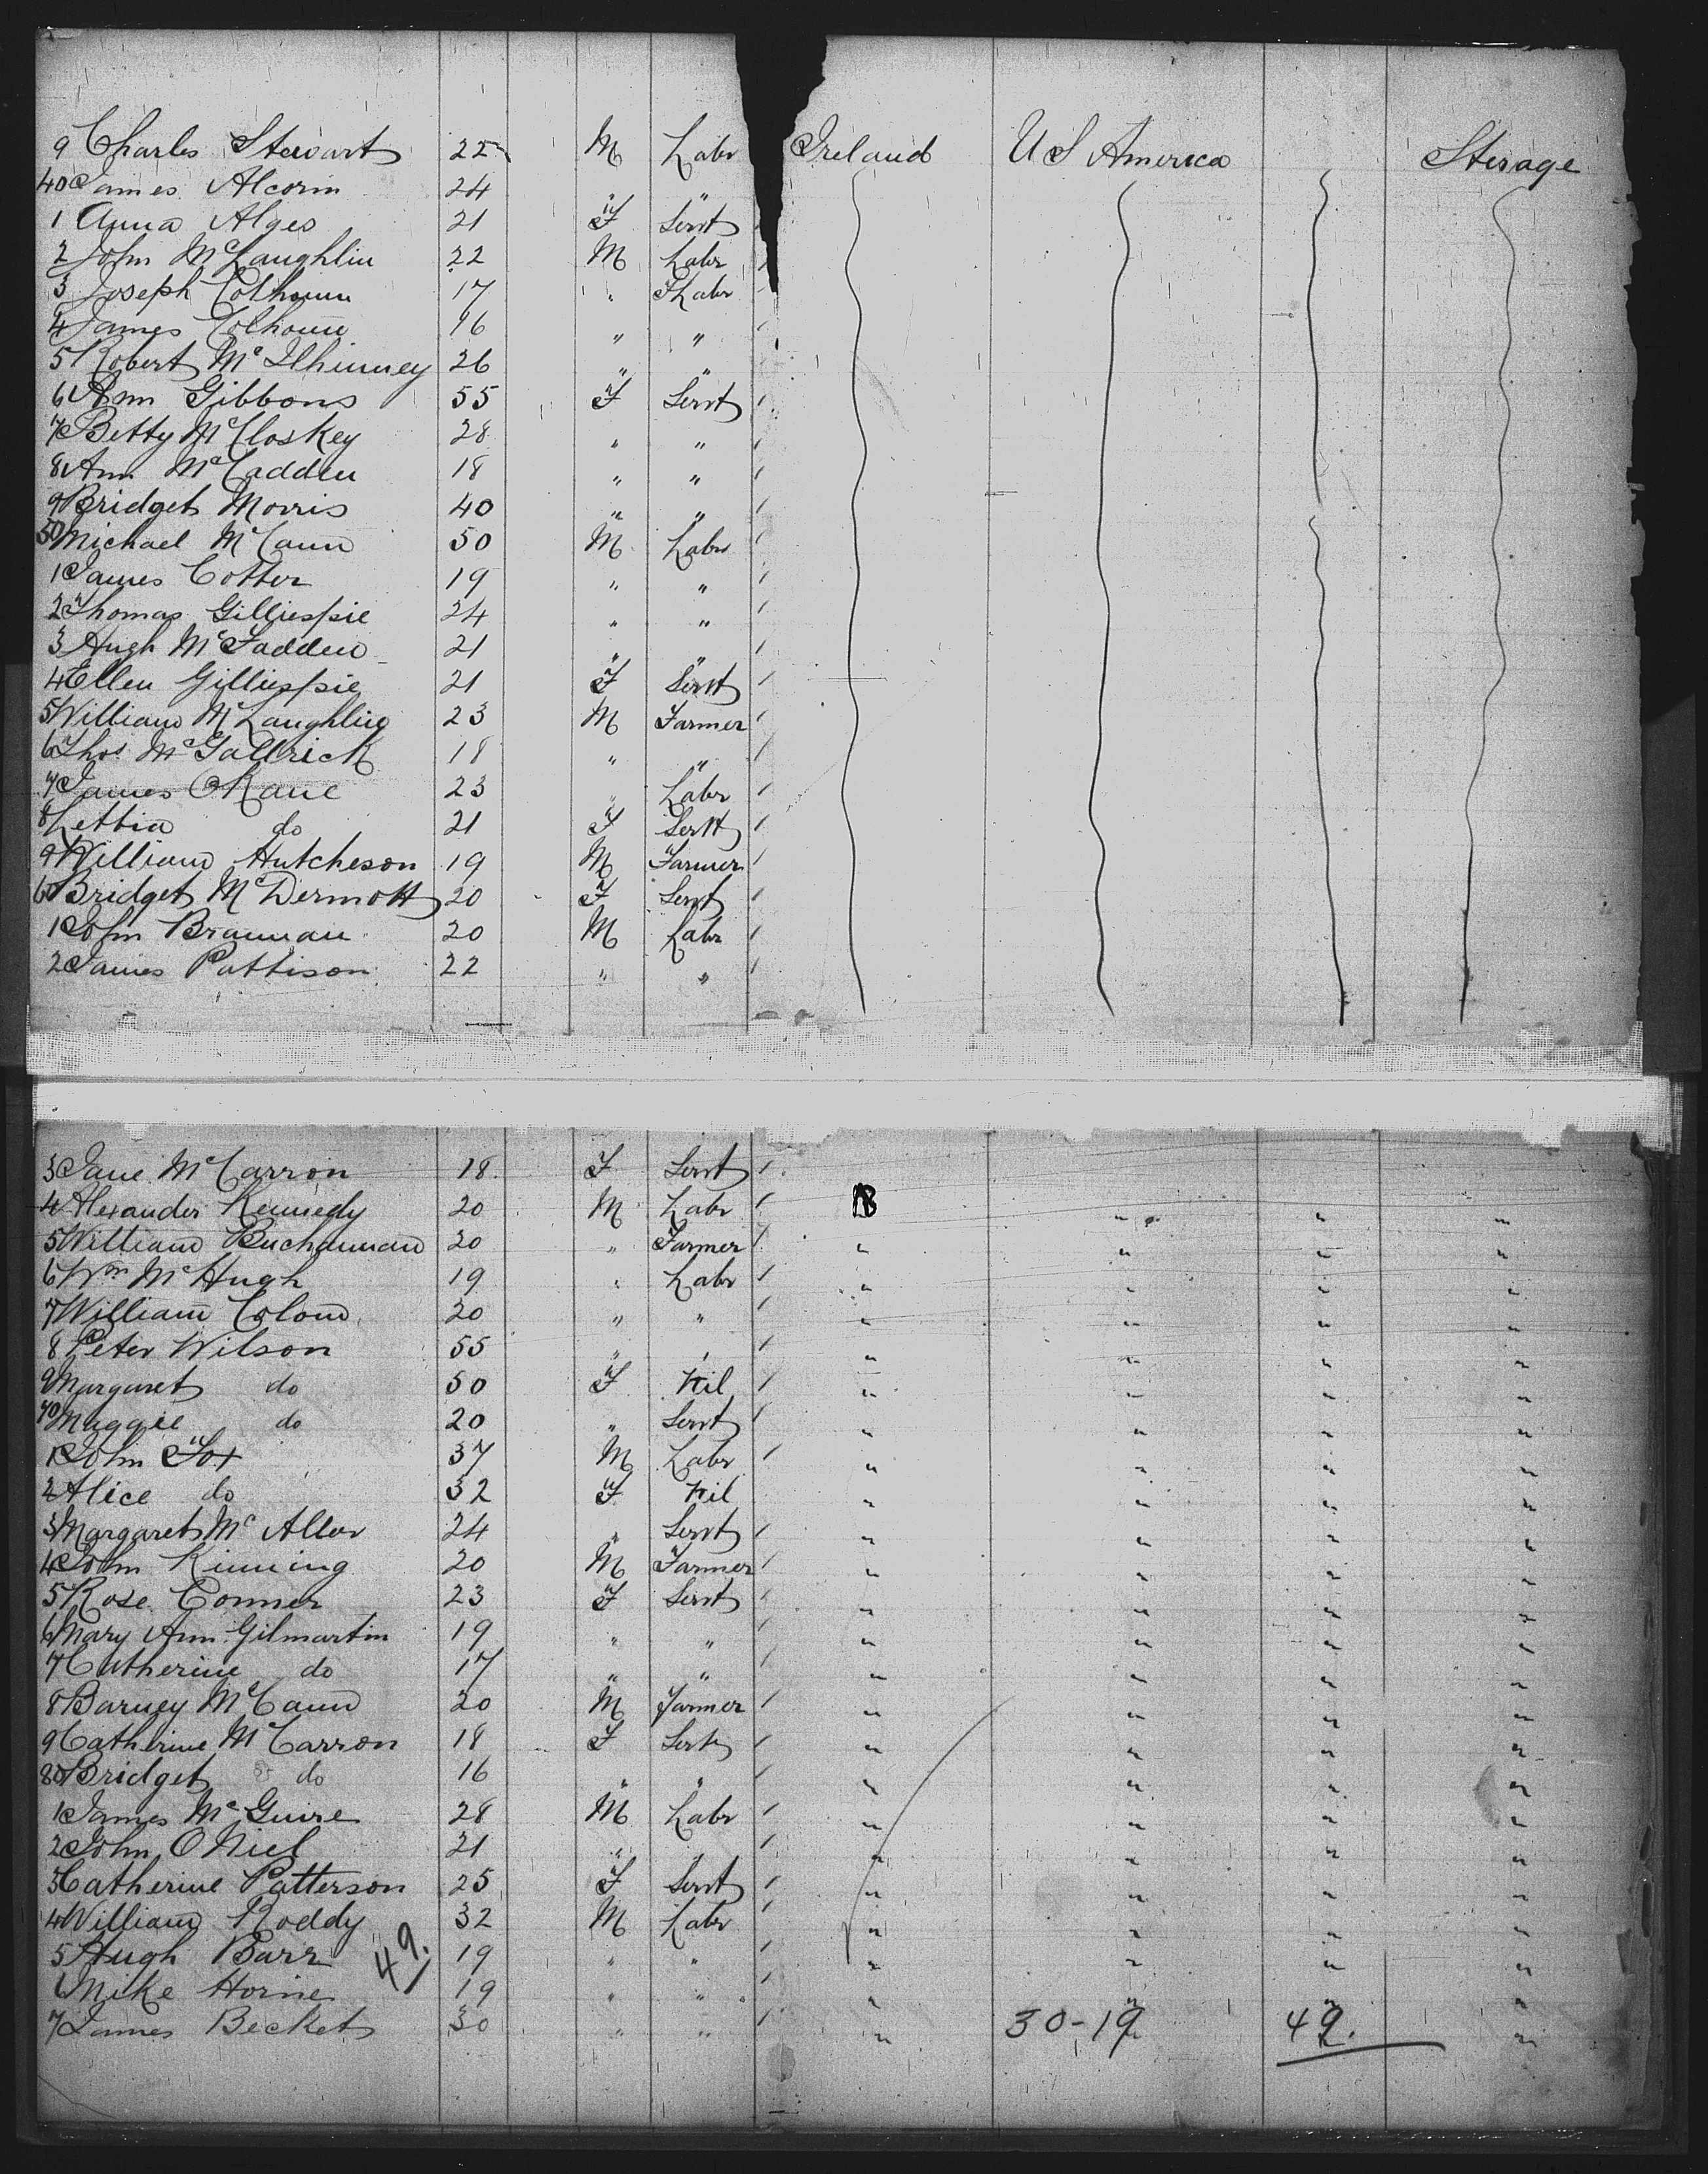 9 Charles Stewart 22 M Labr Ireland U S America Sterage
40 James Alcorn 24 " "
1 Anna Alges 21 F Servt
2 John McLaughlin 22 M Labr
3 Joseph Colhoun 17 " Labr
4 James Colhoun 16 " "
5 Robert McIlhinney 26 " "
6 Ann Gibbons 55 F Servt
7 Betty McCloskey 28 " "
8 Ann McCadden 18 " "
9 Bridget Morris 40 " "
50 Michael McCann 50 M Labr
1 James Cotter 19 " "
2 Thomas Gilliespie 24 " "
3 Hugh McFadden 21 " "
4 Ellen Gilliespie 21 F Servt
5 William McLaughlin 23 M Farmer
6 Thos McGallrick 18 " "
7 James OKane 23 " Labr
8 Lettia do 21 F Servt
9 William Hutcheson 19 M Farmer
60 Bridget McDermott 20 F Servt
1 John Brannan 20 M Labr
2 James Pattison 22 " "
3 Jane McCarron 18 F Servt
4 Alexander Kennedy 20 M Labr " " "
5 William Buchannan 20 " Farmer " " " "
6 Wm McHugh 19 " Labr " " " "
7 William Colom 20 " " " " " "
8 Peter Wilson 55 " " " " " "
9 Margaret do 50 F Nil " " " "
70 Maggie do 20 " Servt " " " "
1 John Fox 37 M Labr " " " "
2 Alice do 32 F Nil " " " "
3 Margaret McAllor 24 " Servt " " " "
4 John Kinning 20 M Farmer " " " "
5 Rose Conner 23 F Servt " " " "
6 Mary Ann Gilmartin 19 " " " " " "
7 Catherine do 17 " " " " " "
8 Barney McCann 20 M Farmer " " " "
9 Catherine McCarron 18 F Servt " " " "
80 Bridget do 16 " " " " " "
1 James McGuire 28 M Labr " " " "
2 John ONiel 21 " " " " " "
3 Catherine Patterson 25 F Servt " " " "
4 William Roddy 32 M Labr " " " "
5 Hugh Barr 49. 19 " " " " " "
6 Mike Horne 19 " " " " " "
7 James Becket 30 " " " 30-19 49. "